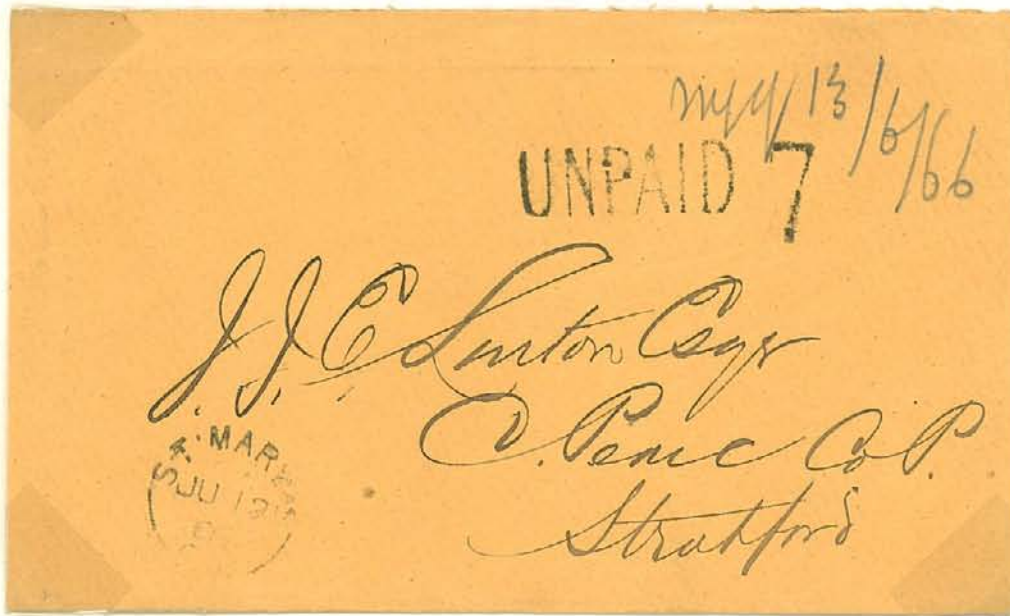 13/6/66
UNPAID 7
J. J. E Linton Esqr
C. Peace Co P.
Stratford
ST. MARYS
JU 13